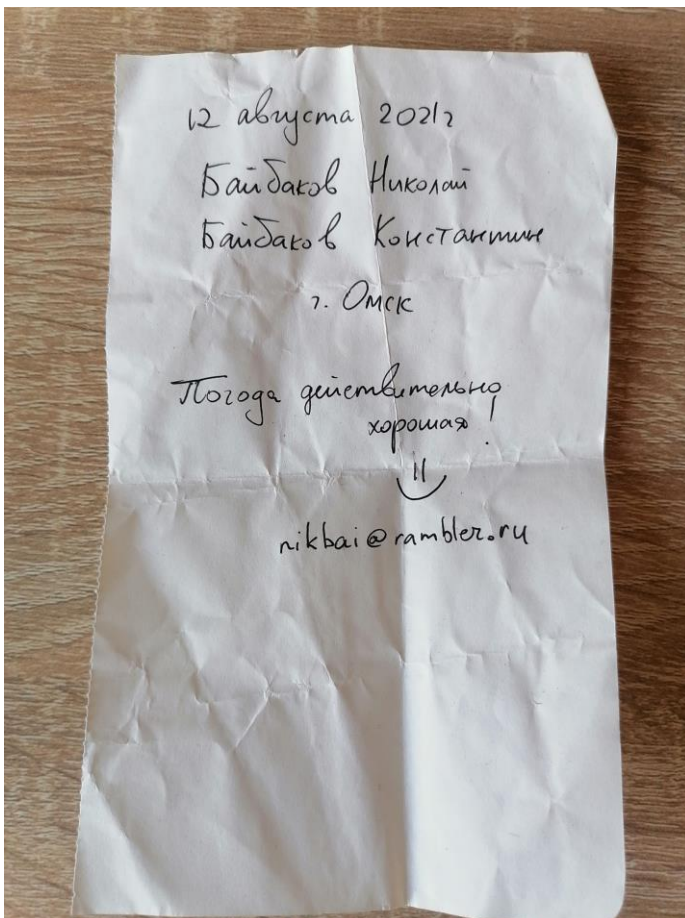 12 августа 2021г
Байбаков Николай
Байбаков Константин
г. Омск
Погода действительно
хорошая!
nikbai@rambler.ru